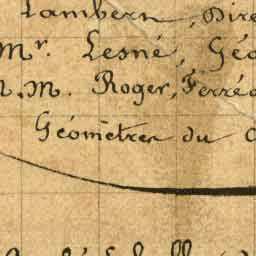 Lambert, Dire
Mr. Lesné, Géo
M.M. Roger, Ferré
Géomètres du C